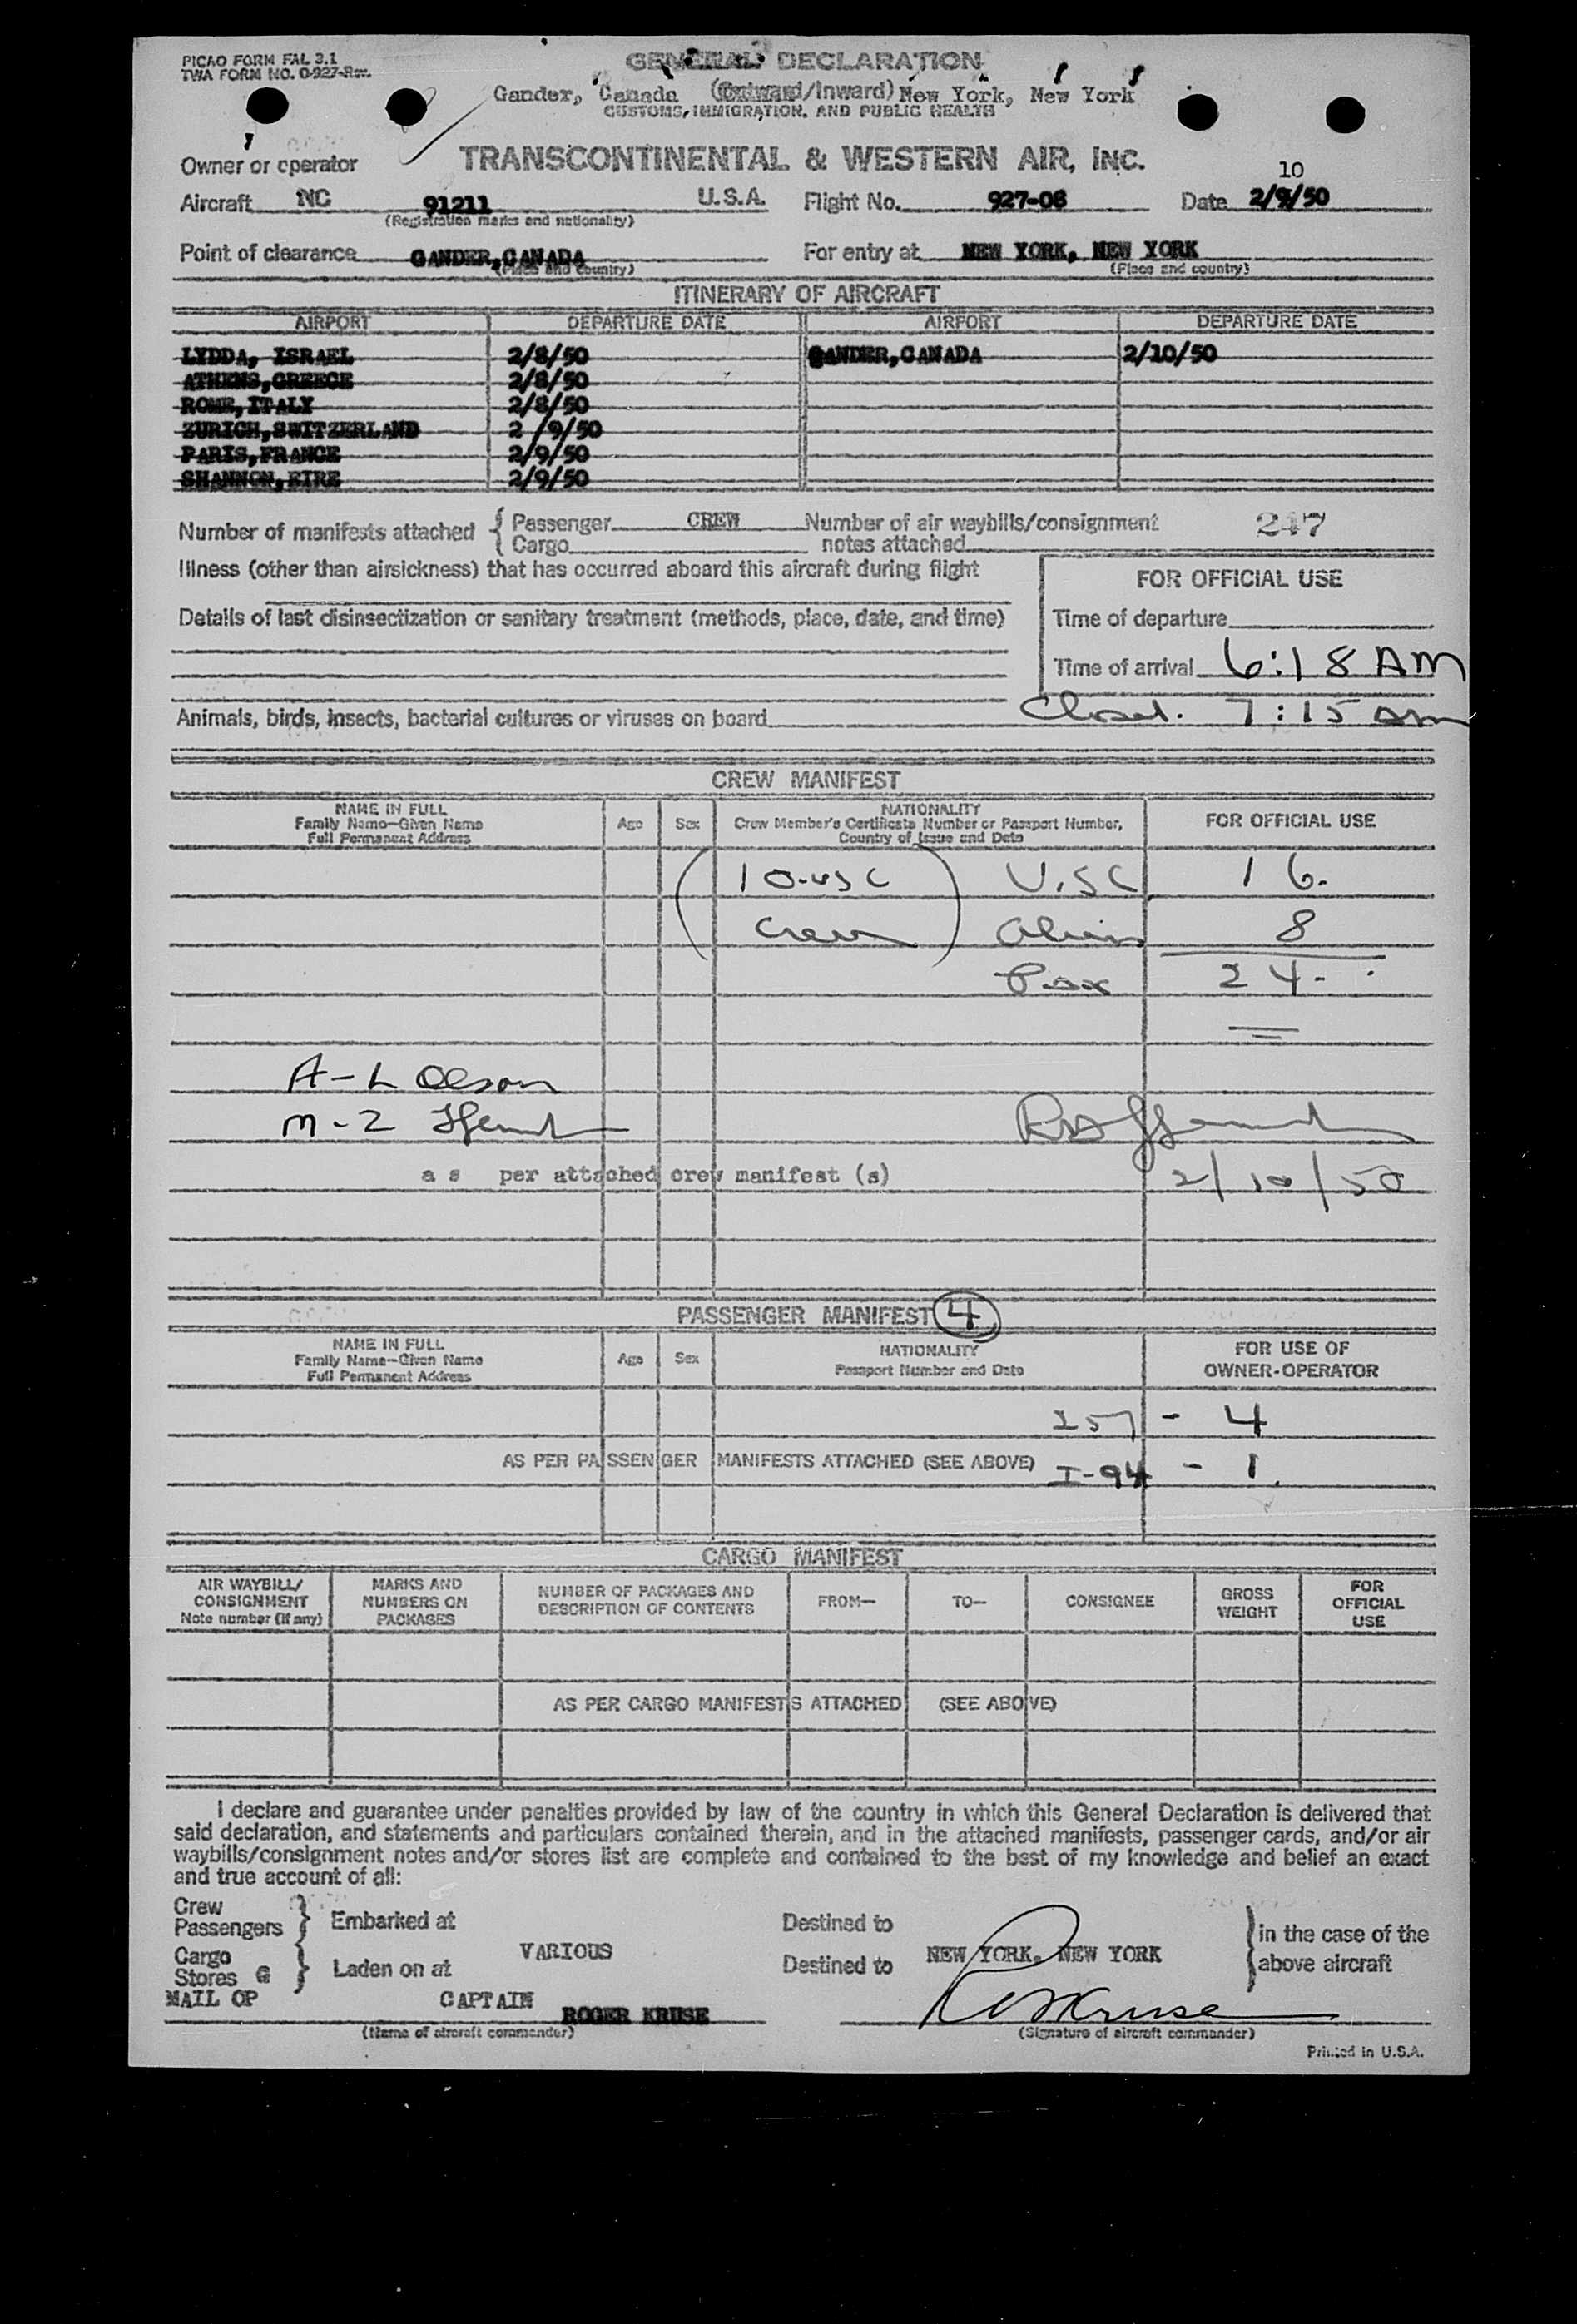 PICAO FORM FAL 3.1
TWA FORM NO. 0-927-Rev.
GENERAL DECLARATION
Gander, Canada (Outward/Inward) New York, New York
CUSTOMS, IMMIGRATION, AND PUBLIC HEALTH
Owner or operator TRANSCONTINENTAL & WESTERN AIR, INC.
10
Aircraft NC 91211 U.S.A. Flight No. 927-08 Date 2/9/50
(Registration marks and nationality)
Point of clearance GANDER,CANADA For entry at NEW YORK, NEW YORK
(Place and country) (Place and country)
ITINERARY OF AIRCRAFT
AIRPORT DEPARTURE DATE AIRPORT DEPARTURE DATE
LYDDA, ISRAEL 2/8/50 GANDER,CANADA 2/10/50
ATHENS,GREECE 2/8/50
ROME,ITALY 2/8/50
ZURICH,SWITZERLAND 2 /9/50
PARIS,FRANCE 2/9/50
SHANNON,EIRE 2/9/50
Number of manifests attached { Passenger CREW Number of air waybills/consignment 247
Cargo notes attached
Illness (other than airsickness) that has occurred aboard this aircraft during flight
FOR OFFICIAL USE
Details of last disinsectization or sanitary treatment (methods, place, date, and time)
Time of departure
Time of arrival 6:18 AM
Closed. 7:15 am
Animals, birds, insects, bacterial cultures or viruses on board
CREW MANIFEST
NAME IN FULL
Family Name—Given Name
Full Permanent Address
Age Sex
NATIONALITY
Crew Member's Certificate Number or Passport Number,
Country of Issue and Date
FOR OFFICIAL USE
(10-USC U.SC 16.
Crew) Aliens 8
Pax 24-
A-L Olson
M-Z
as per attached crew manifest (s)
2/10/50
PASSENGER MANIFEST 4
NAME IN FULL
Family Name—Given Name
Full Permanent Address
Age Sex
NATIONALITY
Passport Number and Date
FOR USE OF
OWNER-OPERATOR
257 - 4
AS PER PASSENGER MANIFESTS ATTACHED (SEE ABOVE) I-94 - 1.
CARGO MANIFEST
AIR WAYBILL/
CONSIGNMENT
Note number (if any)
MARKS AND
NUMBERS ON
PACKAGES
NUMBER OF PACKAGES AND
DESCRIPTION OF CONTENTS
FROM—
TO—
CONSIGNEE
GROSS
WEIGHT
FOR
OFFICIAL
USE
AS PER CARGO MANIFESTS ATTACHED (SEE ABOVE)
I declare and guarantee under penalties provided by law of the country in which this General Declaration is delivered that
said declaration, and statements and particulars contained therein, and in the attached manifests, passenger cards, and/or air
waybills/consignment notes and/or stores list are complete and contained to the best of my knowledge and belief an exact
and true account of all:
Crew
Passengers } Embarked at Destined to
Cargo VARIOUS NEW YORK, NEW YORK
Stores @ } Laden on at Destined to
in the case of the
above aircraft
MAIL OP CAPTAIN ROGER KRUSE
(Name of aircraft commander)
R Kruse
(Signature of aircraft commander)
Printed in U.S.A.